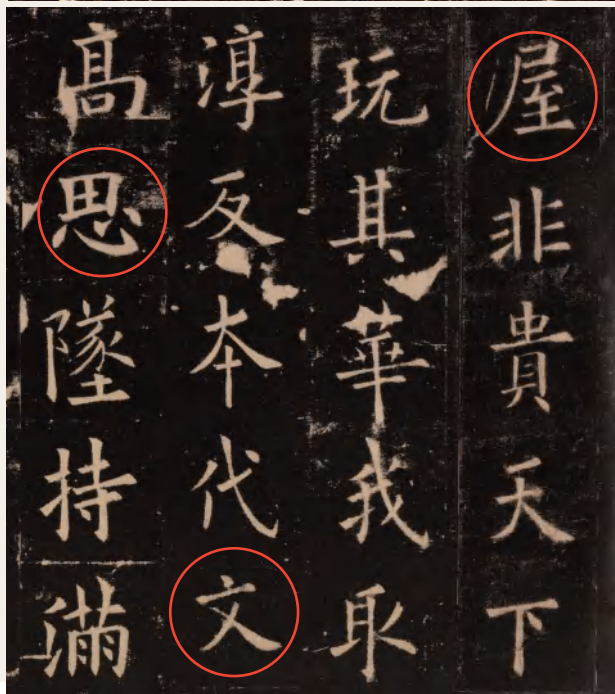 屋非貴天下
玩其華我取
淳反本代文
髙思墜持滿